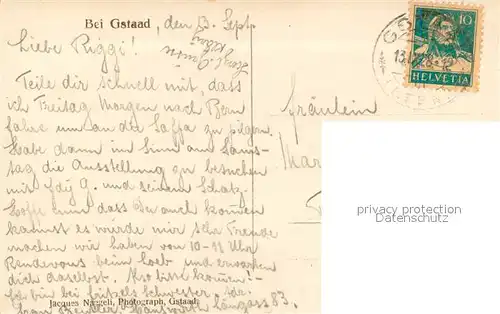 Bei Gstaad, den 13. Sept.
Liebe Riggi!
Teile dir schnell mit, dass
ich Freitag Morgen nach Bern
fahre um an die Saffa zu pilgern.
Habe dann im Sinn am Sams-
tag die Ausstellung zu besuchen
mit G. und seinem Schatz.
Hoffe nun dass Du auch kommen
kannst es würde mir sehr Freude
machen wir haben von 10-11 Uhr
Rendevous beim Loeb und erwarten
dich daselbst. Also bitte kommen!-
Ich bin bei Schwester.
Längass 83.
Jacques Naegeli, Photograph, Gstaad
Fräulein
Mar
10
HELVETIA
privacy protection
www.oldthing.de